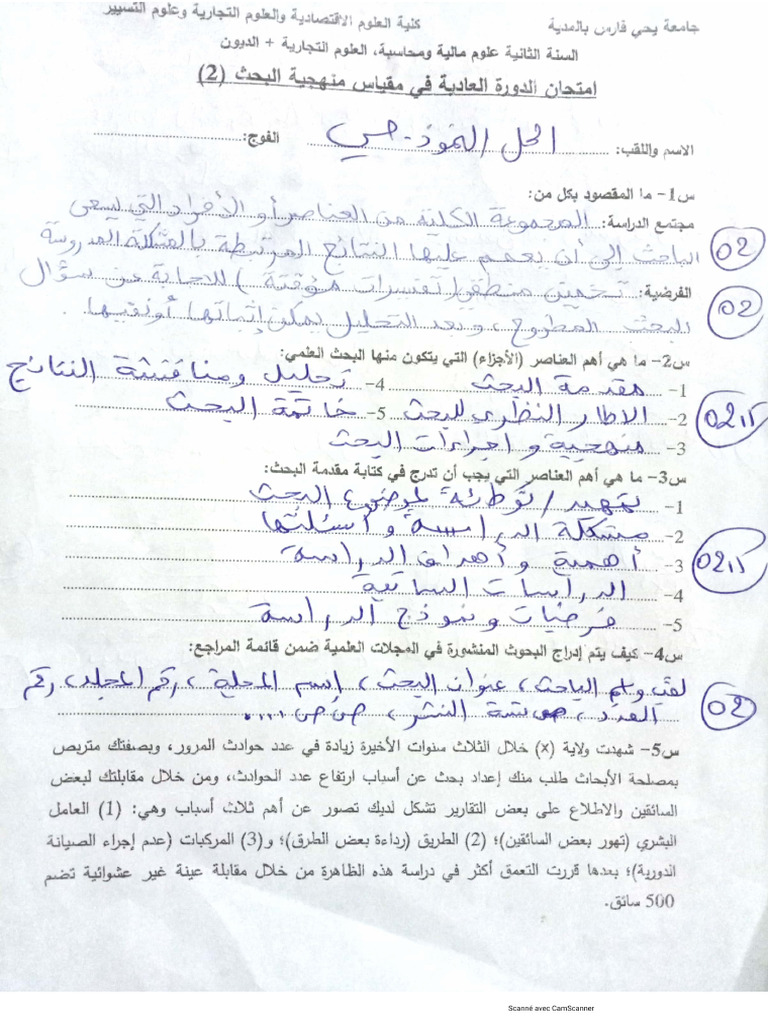 جامعة يحي فارس بالمدية كلية العلوم الاقتصادية والعلوم التجارية وعلوم التسيير
السنة الثانية علوم مالية ومحاسبة، العلوم التجارية + الديون
امتحان الدورة العادية في مقياس منهجية البحث (2)
الاسم واللقب: الحل النموذجي الفوج:
س1- ما المقصود بكل من:
مجتمع الدراسة: المجموعة الكلية من العناصر أو الأفراد التي يسعى
الباحث إلى أن يعمم عليها النتائج المرتبطة بالمشكلة المدروسة
02
الفرضية: تخمين منطقي (تفسيرات مؤقتة) للاجابة عن سؤال
البحث المطروح، وبعد التحليل يمكن إثباتها أو نفيها.
02
س2- ما هي أهم العناصر (الأجزاء) التي يتكون منها البحث العلمي:
1- مقدمة البحث 4- تحليل ومناقشة النتائج
2- الاطار النظري للبحث 5- خاتمة البحث
02,5
3- منهجية و اجراءات البحث
س3- ما هي أهم العناصر التي يجب أن تدرج في كتابة مقدمة البحث:
1- تمهيد / توطئة لموضوع البحث
2- مشكلة الدراسة و أسئلتها
3- أهمية و أهداف الدراسة
02,5
4- الدراسات السابقة
5- فرضيات و نموذج الدراسة
س4- كيف يتم إدراج البحوث المنشورة في المجلات العلمية ضمن قائمة المراجع:
لقب واسم الباحث، عنوان البحث، إسم المجلة، رقم المجلد، رقم
العدد، سنة النشر، ص ص ....
02
س5- شهدت ولاية (x) خلال الثلاث سنوات الأخيرة زيادة في عدد حوادث المرور، وبصفتك متربص
بمصلحة الأبحاث طلب منك إعداد بحث عن أسباب ارتفاع عدد الحوادث، ومن خلال مقابلتك لبعض
السائقين والاطلاع على بعض التقارير تشكل لديك تصور عن أهم ثلاث أسباب وهي: (1) العامل
البشري (تهور بعض السائقين)؛ (2) الطريق (رداءة بعض الطرق)؛ و(3) المركبات (عدم إجراء الصيانة
الدورية)؛ بعدها قررت التعمق أكثر في دراسة هذه الظاهرة من خلال مقابلة عينة غير عشوائية تضم
500 سائق.
Scanné avec CamScanner